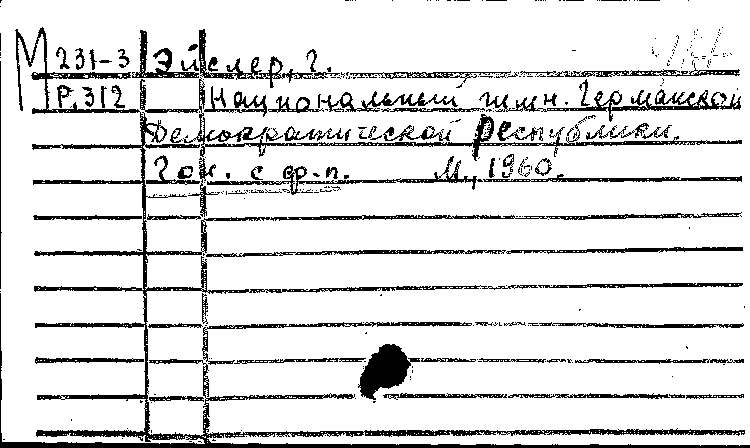 М 231-3 Эйслер, Г.
Р.312 Национальный гимн. Германской
Демократической Республики.
Гол. с ф-п. М., 1960.